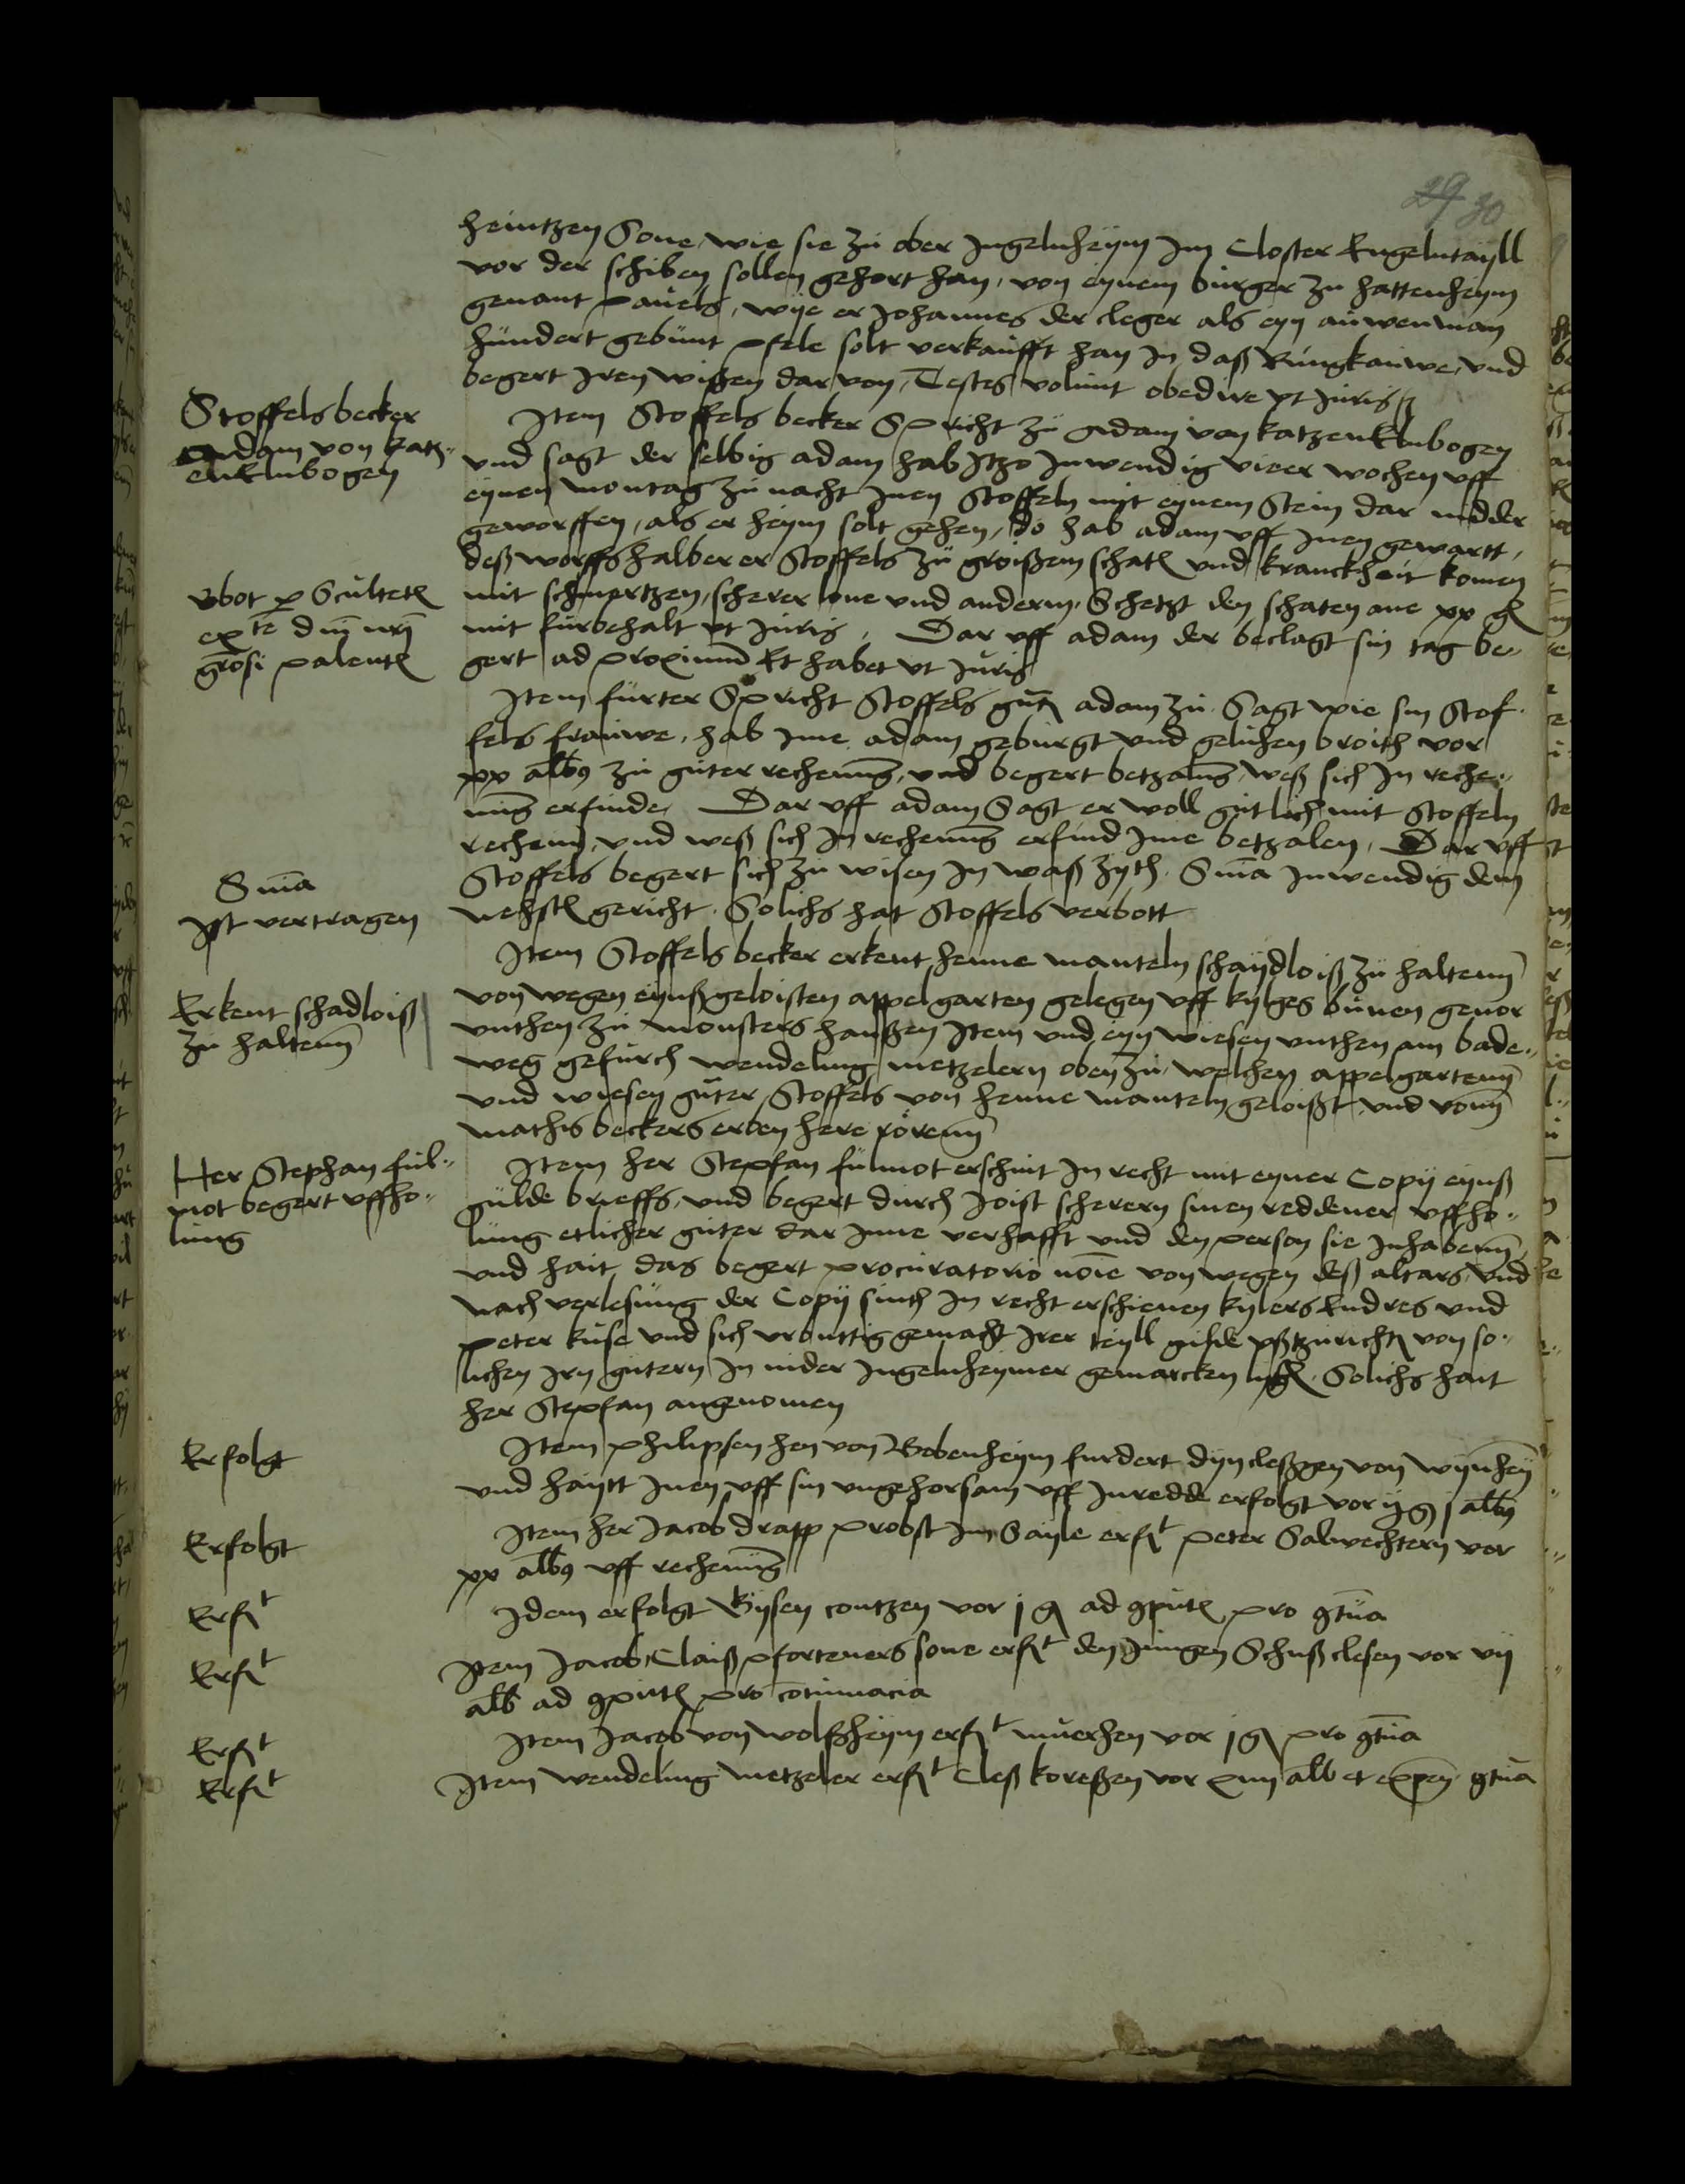 29 30
heintzen Sone, wie sie zu ober Ingelnheym Im Closter Engelntayll
vor der schiben sollen gehort han, von eynem burger zu hattenheym
genant pauels, wye er Johannes der cleger als eyn auwenman
hundert gebunt pfele solt verkaufft han In daß Ringkauwe, und
begert Iren wißen dar von, Testes volunt obedire ut Juris
Stoffels becker
Adam von katz„
enelnbogen
Item Stoffels becker Spricht zu adam von katzenelnbogen
und sagt der selbig adam hab Itzo Inwendig vieer wochen uff
eynen montag zu nacht Inen Stoffeln mit eynem Stein dar nidder
geworffen, als er heym solt gehen, do hab adam uff Inen gewartt,
deß worffs halber er Stoffels zu groißem schaten und kranckheit komen
ubot p Scultet
ex te dm nri
grosi palent
mit schmertzen, scherer lone und anderm, Schetzt den schaten ane xx gl
mit furbehalt ut Juris. Dar uff adam der beclagt sin tag be„
gert ad proximum Et habet ut Juris
Item furter Spricht Stoffels gut adam zu. Sagt wie sin Stof„
fels frauwe, hab Ime adam geburgt und geluhen broith vor
xx albus zu guter rechenung, und begert betzalung, weß sich In reche„
nung erfinde. Dar uff adam Sagt er woll gutlich mit Stoffeln
rechenn, und weß sich In rechenung erfind Ime betzalen. Dar uff
Snia
Ist vertragen
Stoffels begert sich zu wisen In waß zyth. Snia Inwendig dem
nehsten gericht. Solichs hat Stoffels verbott
Erkent schadloiß
zu haltenn
Item Stoffels becker erkent henne manteln schaydloiß zu haltenn
von wegen eynß geloisten appelgarten gelegen uff kylges bunen gevor
unthen zu monsters hanßen Item und eyn wiesen unthen am bade„
weg gefurch wendeling metzelern oben zu, welchen appelgartenn
und wiesen guter Stoffels von henne manteln geloißt, und vonn
mathis beckers erben here rörenn
Her Stephan ful„
not begert uffho„
lung
Item her Stepfan fulnot erschint In recht mit eyner Copy eynß
gulde brieffs, und begert durch Joist scherern sinen reddener uffho„
lung etlicher guter dar Inne verhafft und den person sie Inhabenn,
und hait das begert procuratorio noie von wegen deß altars, und
nach verlesung der Copy sinth In recht erschienen kylers Endres und
peter kuse und sich urbuttig gemacht Irer teyll gulde ußtzurichten von so„
lichen Irn gutern In nider Ingelnheymer gemarcken. Solichs hait
her Stepfan angenomen
Erfolgt
Item philipsen hen von Bobenheym furdert dyn cleßgen von wynhey
und haytt Inen uff sin ungehorsam uff Inredde erfolgt vor ij g j albus
Erfolgt
Item her Jacob drapp probst Im Sayle erft peter Salwechtern vor
xx albus uff rechenung
Erft
Idem erfolgt Bysen contzen vor j g ad gput pro gtua
Erft
Item Jacob, Claiß pforteners sone erft den Jungen Schußclesen vor vij
alb ad gput pro contumacia
Erft
Item Jacob von wolfßheym erft muerhen vor j g pro gtua
Erft
Item wendeling metzeler erft Cleß koreßen vor xiiij alb et expen gtua